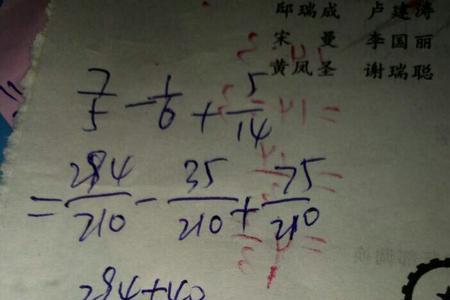 邸瑞成 卢建涛
宋 曼 李国丽
黄凤圣 谢瑞聪
7/5 - 1/6 + 5/14
= 284/210 - 35/210 + 75/210
284+40